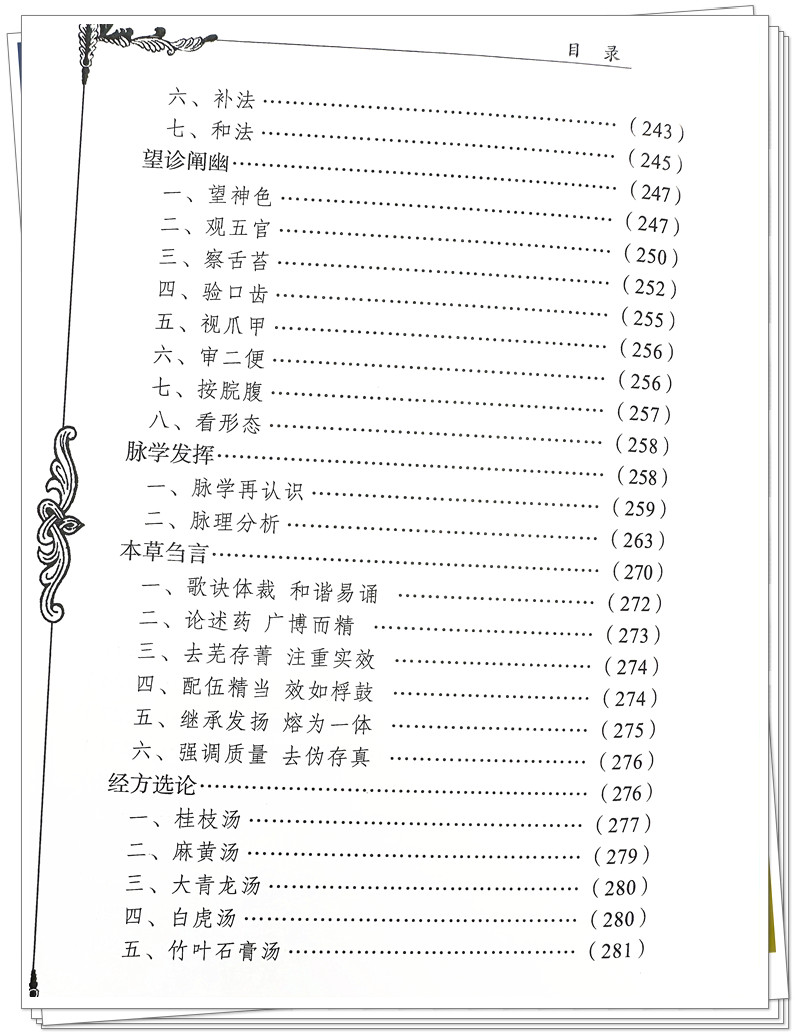 目 录
六、补法……………………(243)
七、和法……………………(245)
望诊阐幽……………………(247)
一、望神色……………………(247)
二、观五官……………………(250)
三、察舌苔……………………(252)
四、验口齿……………………(255)
五、视爪甲……………………(256)
六、审二便……………………(256)
七、按脘腹……………………(257)
八、看形态……………………(258)
脉学发挥……………………(258)
一、脉学再认识……………………(259)
二、脉理分析……………………(263)
本草刍言……………………(270)
一、歌诀体裁 和谐易诵 ……………………(272)
二、论述药 广博而精 ……………………(273)
三、去芜存菁 注重实效 ……………………(274)
四、配伍精当 效如桴鼓 ……………………(274)
五、继承发扬 熔为一体 ……………………(275)
六、强调质量 去伪存真 ……………………(276)
经方选论……………………(276)
一、桂枝汤……………………(277)
二、麻黄汤……………………(279)
三、大青龙汤……………………(280)
四、白虎汤……………………(280)
五、竹叶石膏汤……………………(281)